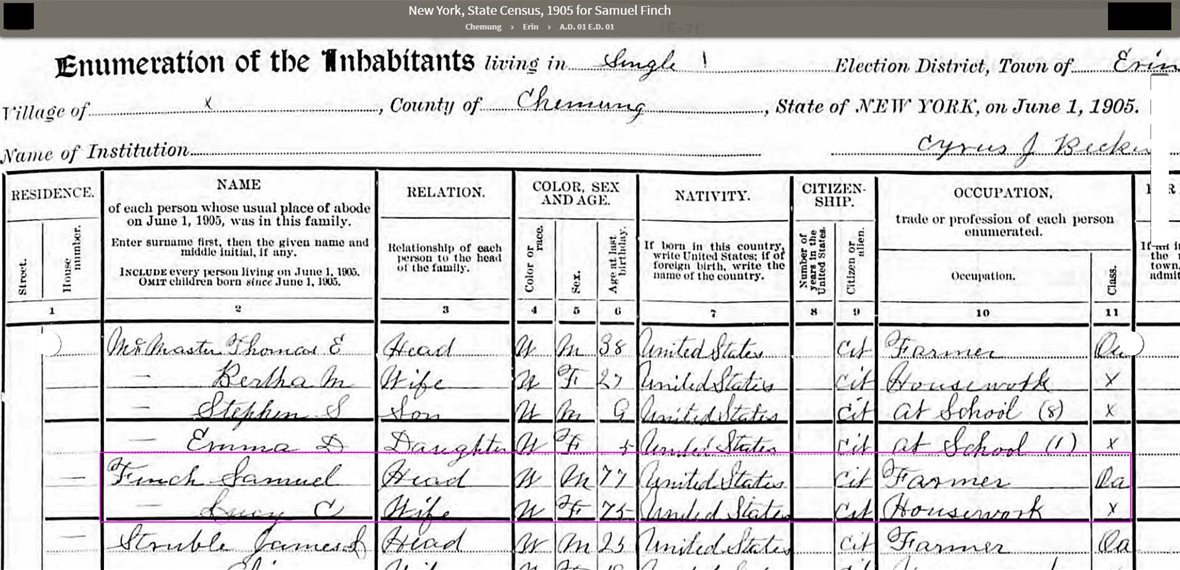 New York, State Census, 1905 for Samuel Finch
Chemung > Erin > A.D. 01 E.D. 01
Enumeration of the Inhabitants living in Single 1 Election District, Town of Erin
Village of x, County of Chemung, State of NEW YORK, on June 1, 1905.
Name of Institution Cyrus J Becker
RESIDENCE. NAME RELATION. COLOR, SEX AND AGE. NATIVITY. CITIZEN-SHIP. OCCUPATION,
of each person whose usual place of abode on June 1, 1905, was in this family.
Enter surname first, then the given name and middle initial, if any.
INCLUDE every person living on June 1, 1905.
OMIT children born since June 1, 1905.
Relationship of each person to the head of the family.
If born in this country, write United States; if of foreign birth, write the name of the country.
trade or profession of each person enumerated.
Street. House number. Color or race. Sex. Age at last birthday. Number of years in the United States. Citizen or alien. Occupation. Class.
1 2 3 4 5 6 7 8 9 10 11
McMaster Thomas E Head W M 38 United States Cit Farmer Oa
— Bertha M Wife W F 27 United States Cit Housework x
— Stephen S Son W M 9 United States Cit at School (8) x
— Emma D Daughter W F 5 United States Cit at School (1) x
— Finch Samuel Head W M 77 United States Cit Farmer Oa
— Lucy C Wife W F 75 United States Cit Housework x
— Struble James Head W M 25 United States Cit Farmer Oa